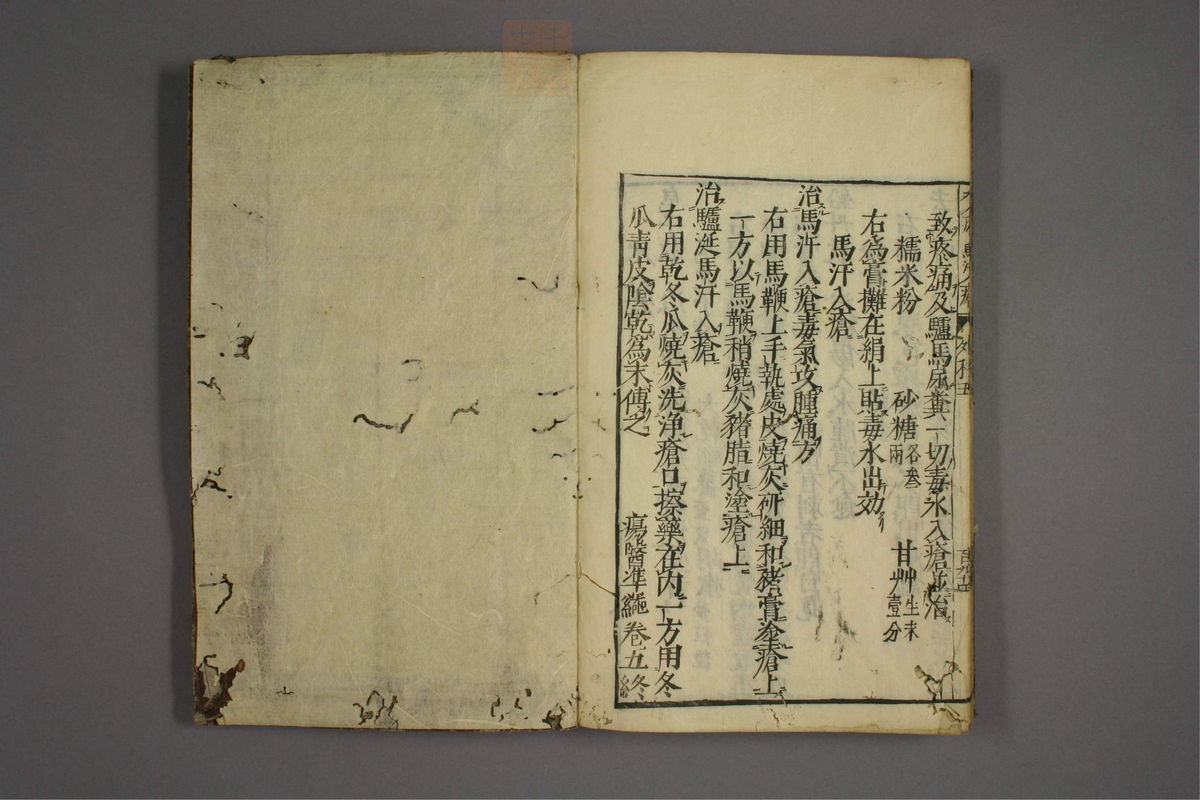 致疼痛及驢馬尿糞一切毒水入瘡並治
糯米粉 砂糖各叁兩 甘艸生末壹分
右為膏攤在絹上貼毒水出効
馬汗入瘡
治馬汗入瘡毒氣攻腫痛方
右用馬鞭上手執處皮燒灰研細和猪膏塗瘡上
一方以馬鞭稍燒灰豬脂和塗瘡上
治驢涎馬汗入瘡
右用乾冬瓜燒灰洗淨瘡口摻藥在内一方用冬
瓜青皮陰乾為末傅之 瘍醫準繩卷五終